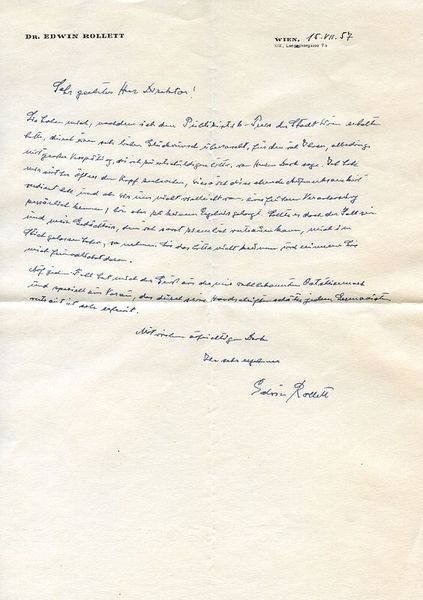 DR. EDWIN ROLLETT
WIEN, 15. VII. 57
VIII., Langegasse
Sehr geehrter Herr Direktor!
Sie haben mich, nachdem ich den Publizistik-Preis der Stadt Wien erhalten
hatte, durch einen sehr lieben Glückwunsch überrascht, für den ich Ihnen, allerdings
mit großer Verspätung, die ich zu entschuldigen bitte, Dank sage. Ich habe
mir seither öfters den Kopf zerbrochen, diese ehrende Aufmerksamkeit
verdient habe und ob wir uns nicht vielleicht von einer früheren Veranstaltung
persönlich kennen, bin aber zu keinem Ergebnis gelangt. Sollte das der Fall sein
und mein Gedächtnis, dem ich sonst vertrauen kann, mich im
Stich gelassen haben, so nehmen Sie das bitte nicht und erinnern Sie
mich daran.
Auf jeden Fall hat mich der Gruß aus die mir wohlbekannten
und speziell aus Vorau, das durch seine Handschriften jedem Germanisten
vertraut ist sehr erfreut.
Mit vielem aufrichtigen Dank
Ihr sehr ergebener
Edwin Rollett